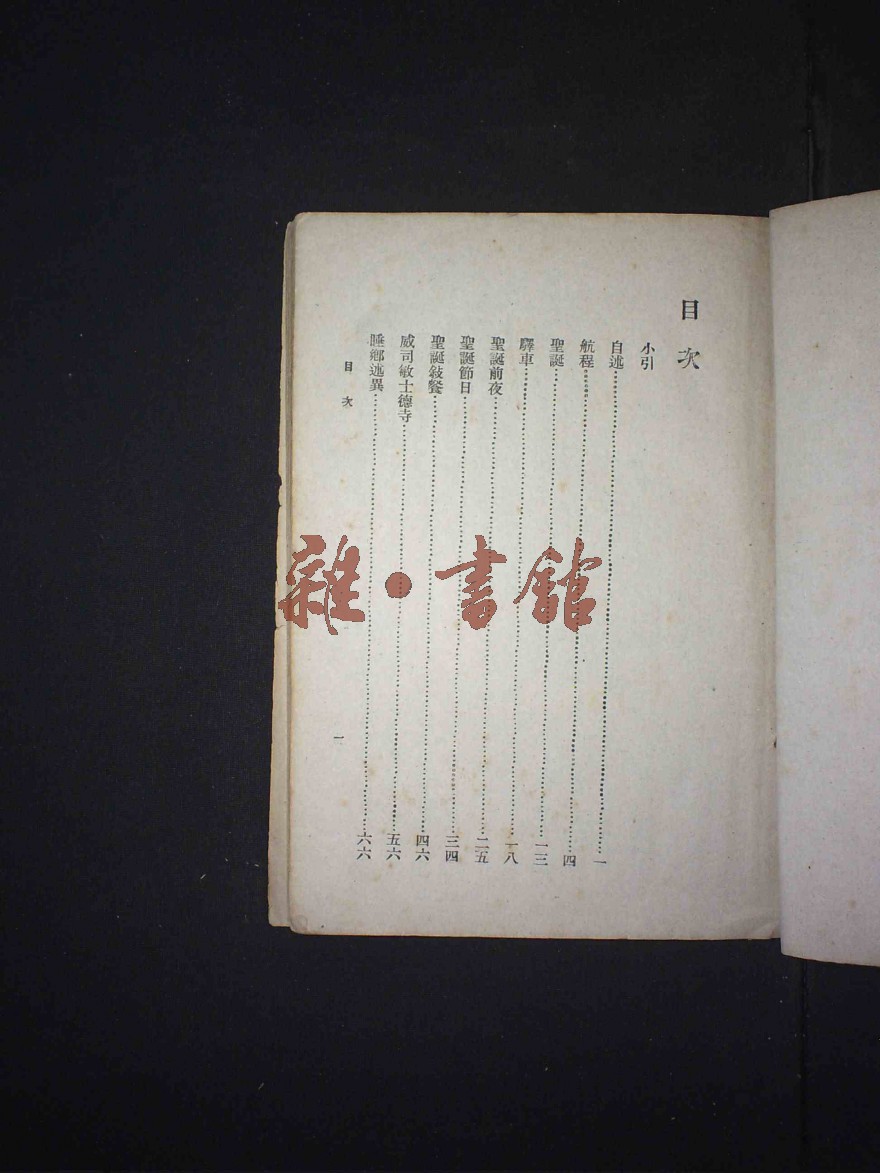 目次
小引
自述……一
航程……四
聖誕……一三
驛車……一八
聖誕前夜……二五
聖誕節日……三四
聖誕敍餐……四六
威司敏士德寺……五六
睡鄉述異……六六
目次
一
雜·書館